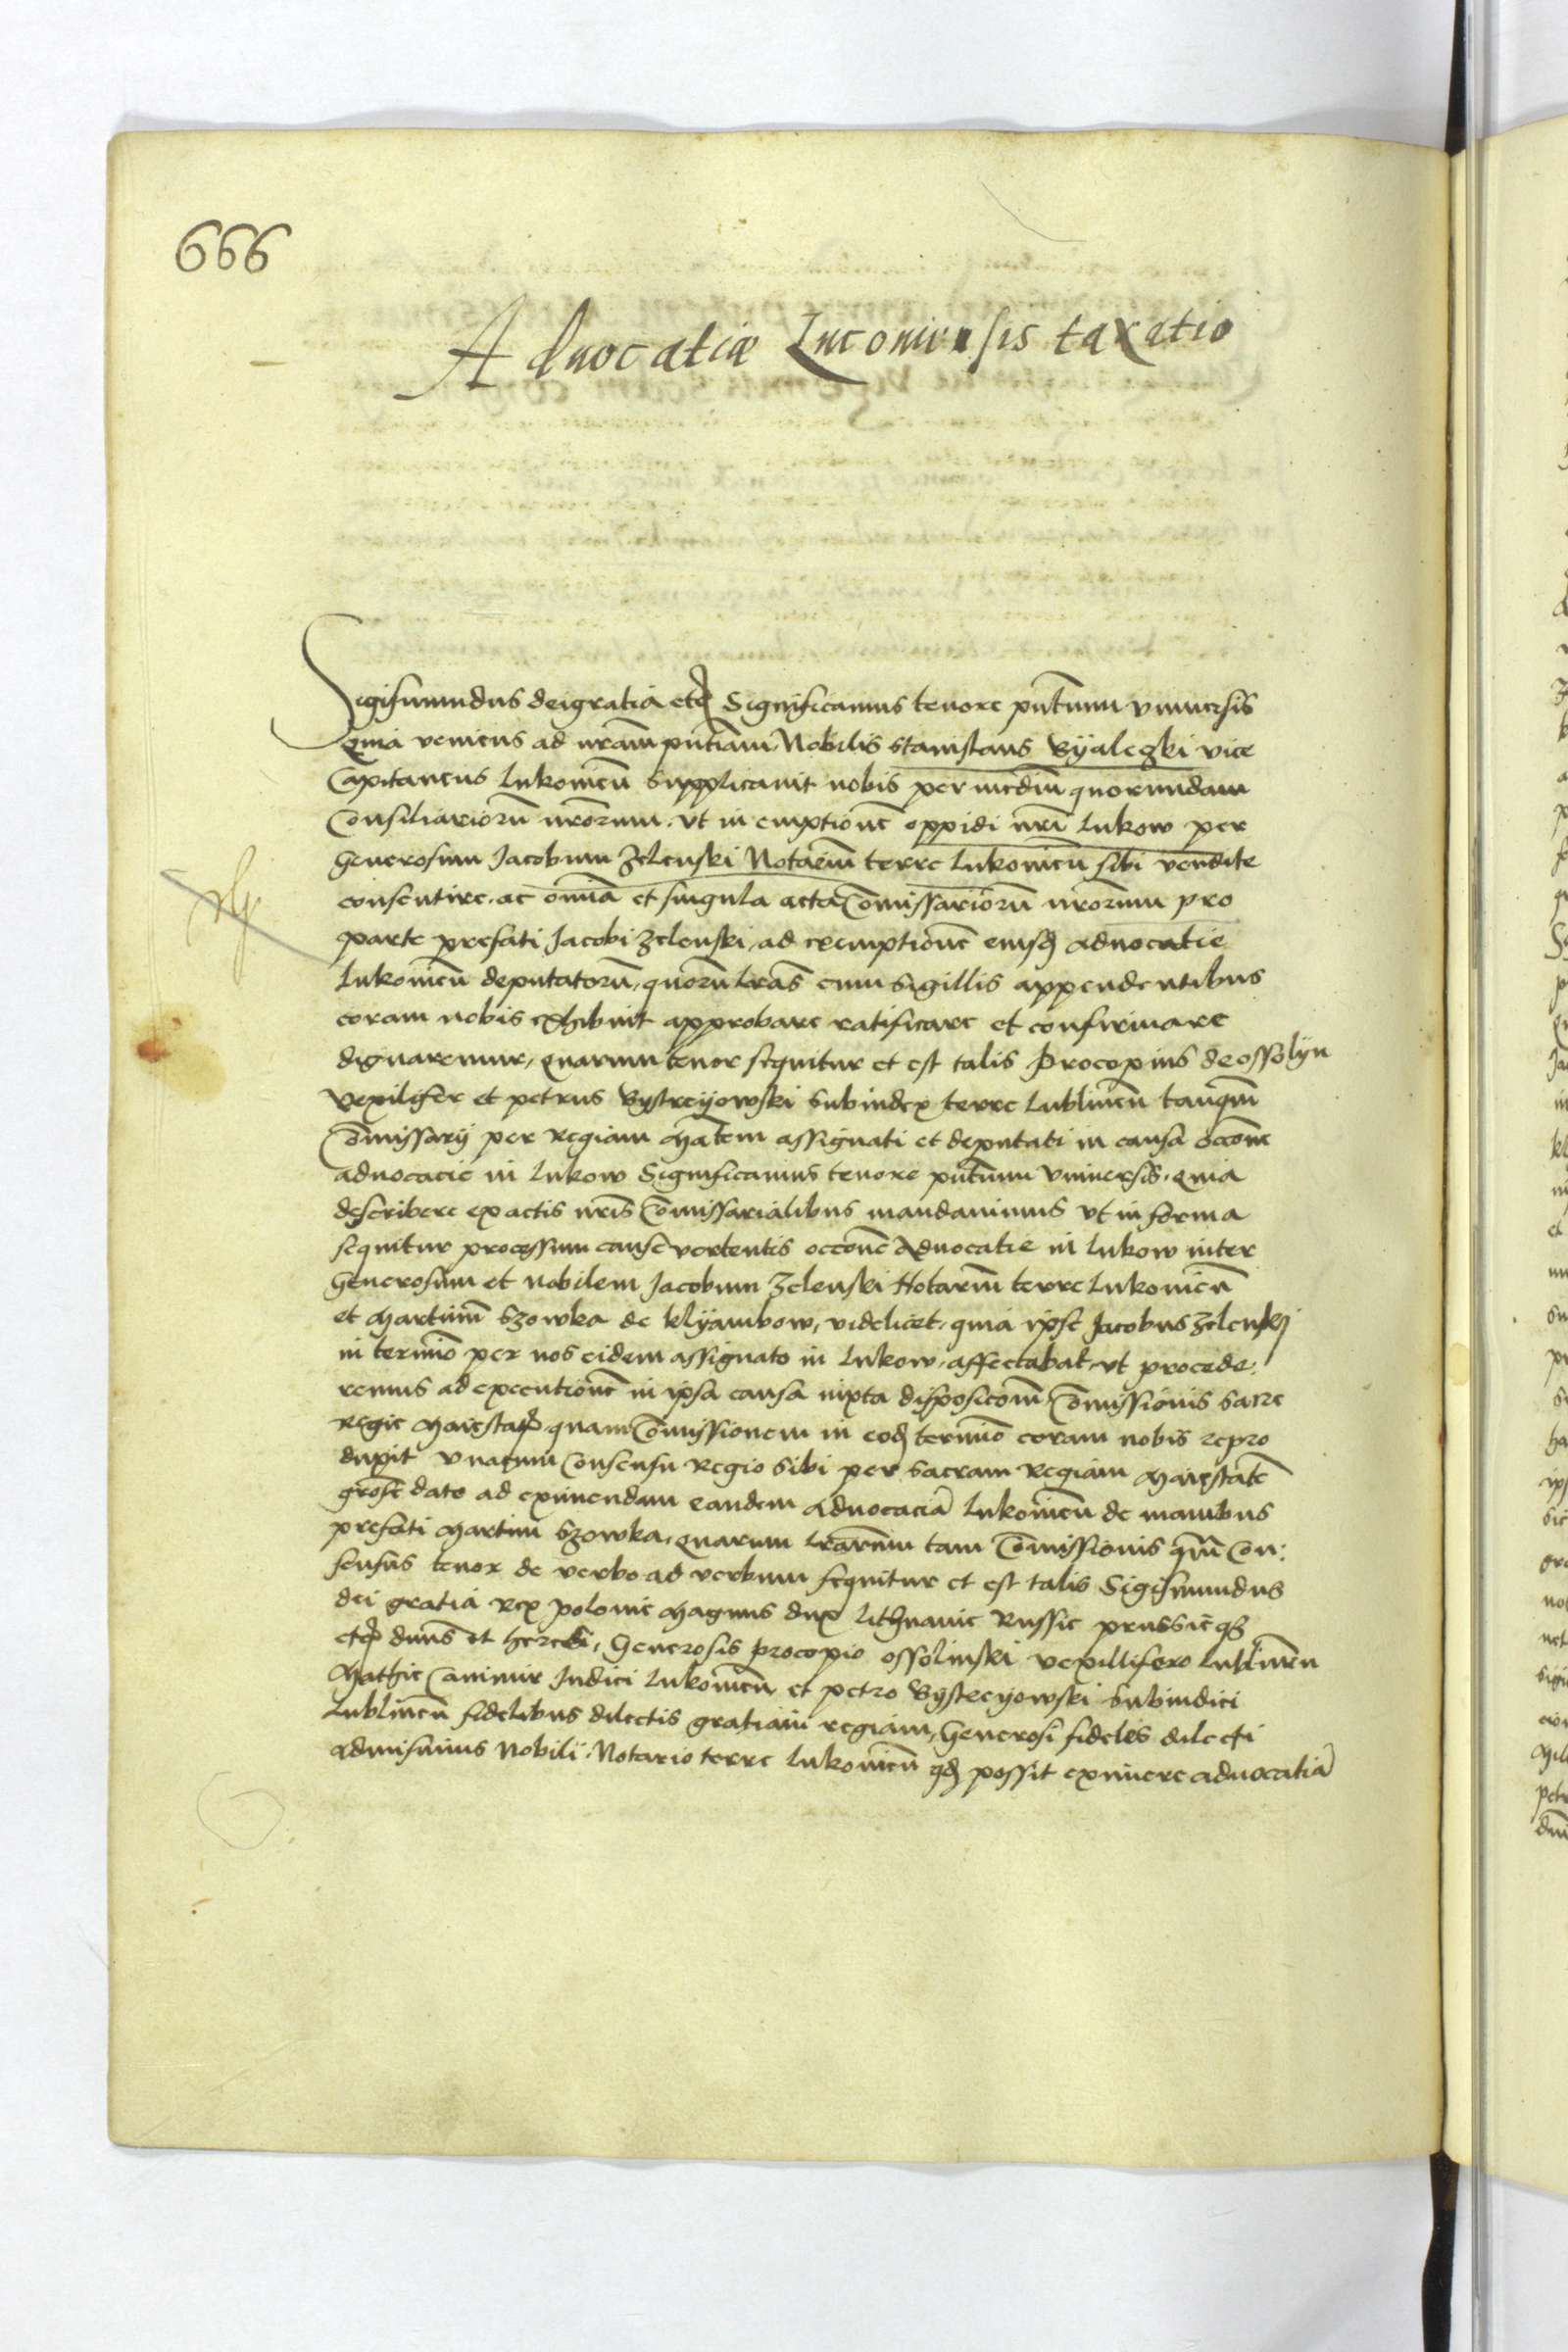 666
Advocatiæ Luconiensis taxatio
Sigismundus dei gratia etc Significamus tenore pntium vniuersis
Quia veniens ad nram pntiam Nobilis Stanislaus Byalegki vice
Capitaneus Lukouien supplicauit nobis per mediu quorundam
Consiliarioru nrorum. vt in emptione oppidi nri Lukow per
Generosum Jacobum Zelenski Notariu terre Lukouien sibi vendite
consentire. ac omia et singula acta Comissarioru nrorum pro
parte prefati Jacobi Zelenski, ad exemptione eiusd aduocatie
Lukouien deputatoru, quoru lras cum sigillis appendentibus
coram nobis exhibuit approbare ratificare et confirmare
dignaremur, Quarum tenor sequitur et est talis Procopius de Ossolyn
vexilifer et petrus Bystreyowski Subiudex terre Lublinen tanqm
Comissarij per Regiam Matem assignati et deputati in causa occone
aduocacie in Lukow Significamus tenore pntium vniuersis. Quia
describere ex actis nris Comissarialibus mandauimus vt in forma
sequitur processum cause vertentis occone Aduocatie in Lukow inter
Generosum et nobilem Jacobum Zelenski Notariu terre Lukouien
et Martinu Szowka de Klyambow, videlicet, quia ipse Jacobus Zelenskj
in termio per nos eidem assignato in Lukow, affectabat, vt procede:
remus ad executione in ipsa causa iuxta disposicom Comissionis Sacre
Regie Maiestatis. quam Comissionem in eod termio coram nobis repro
duxit vnacum Consensu Regio sibi per Sacram Regiam Maiestate
grose dato ad eximendam eandem aduocacia Lukouien de manibus
prefati Martini Szowka, Quarum lrarum tam Comissionis qm Con:
sensus tenor de verbo ad verbum sequitur et est talis Sigismundus
dei gratia Rex polonie Magnus dux Lithuanie Russie prussieq
etc dnns et heres, Generosis procopio Ossolinski vexillifero Lublinen
Mathie Canimir Iudici Lukouien et petro Bystreyowski Subiudici
Lublinen fidelibus dilectis gratiam regiam, Generosi fideles dilecti
admisimus Nobili Notario terre Lukouien qd possit eximere aduocatia